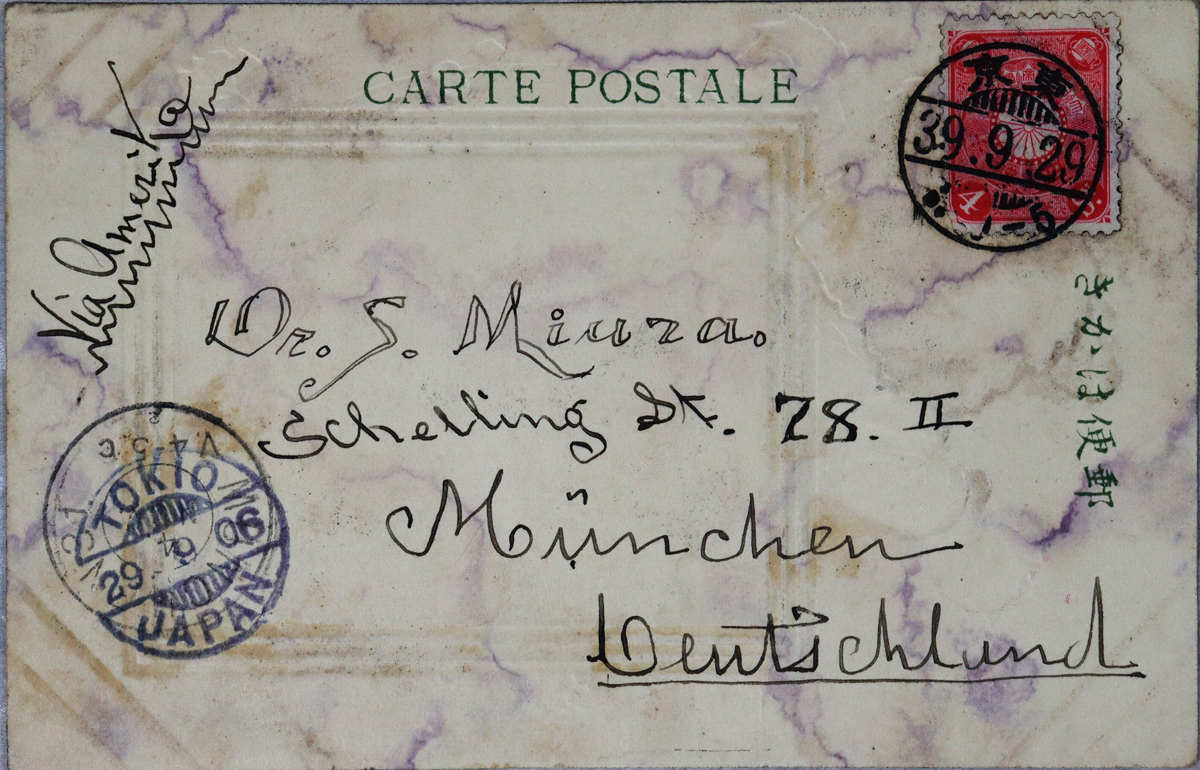 CARTE POSTALE
Via Amerika
東京
39.9.29
4
きかは便郵
Dr. S. Miura.
Schelling St. 78. II
München
Deutschland
TOKIO
29 9 06
JAPAN